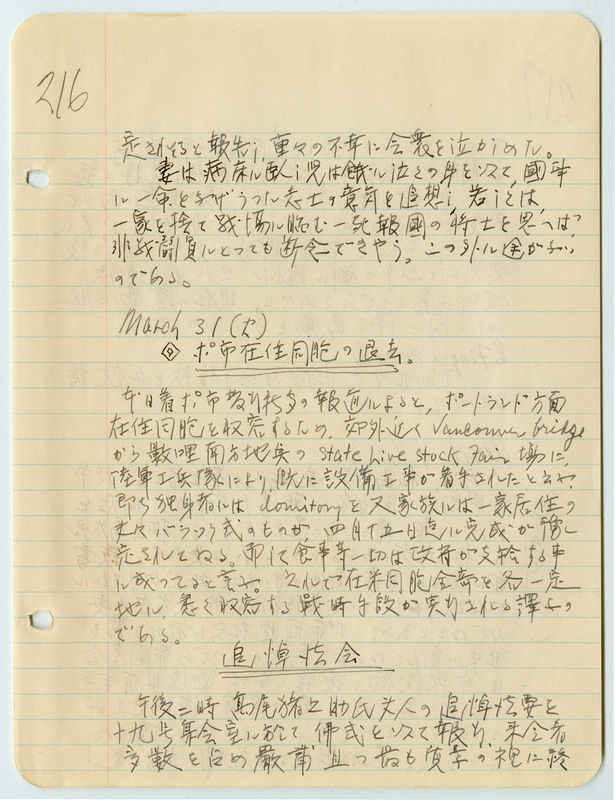 216
定されてると報告し、重々の不幸に会衆を泣かしめた。
妻は病床に臥し児は餓に泣くの身を以て、国事
に一命をさゝげうつた志士の意気を追想し、若しくは、
一家を捨て戦場に臨む一死報國の将士を思へば、
非戦闘員にとつても断念できやう。この外に途がない
のである。
March 31 (火)
ポ市在住同胞の退去。
本日着ポ市発行新聞の報道によると、ポートランド方面
在住同胞を収容するため、郊外近く Vancouver bridge
から数哩南方地点の State Live stock Fair 場に、
陸軍工兵隊により、既に設備工事が着手されたと云ふ。
即ち独身者には domitory を又家族には一家居住の
丈々バラック式のものが、四月十五日迄に完成が予
定されてゐる。而して食事等一切は政府が支給する事
に成つてると言ふ。之れで在米同胞全部を各一定
地に、悉く収容する戦時手段が実行される譯なの
である。
追悼法会
午後二時 高尾 之助氏夫人の追悼法要を
十九号集会室において 佛式を以て報行、来会者
多数を占め厳粛且つ最も真摯の裡に終